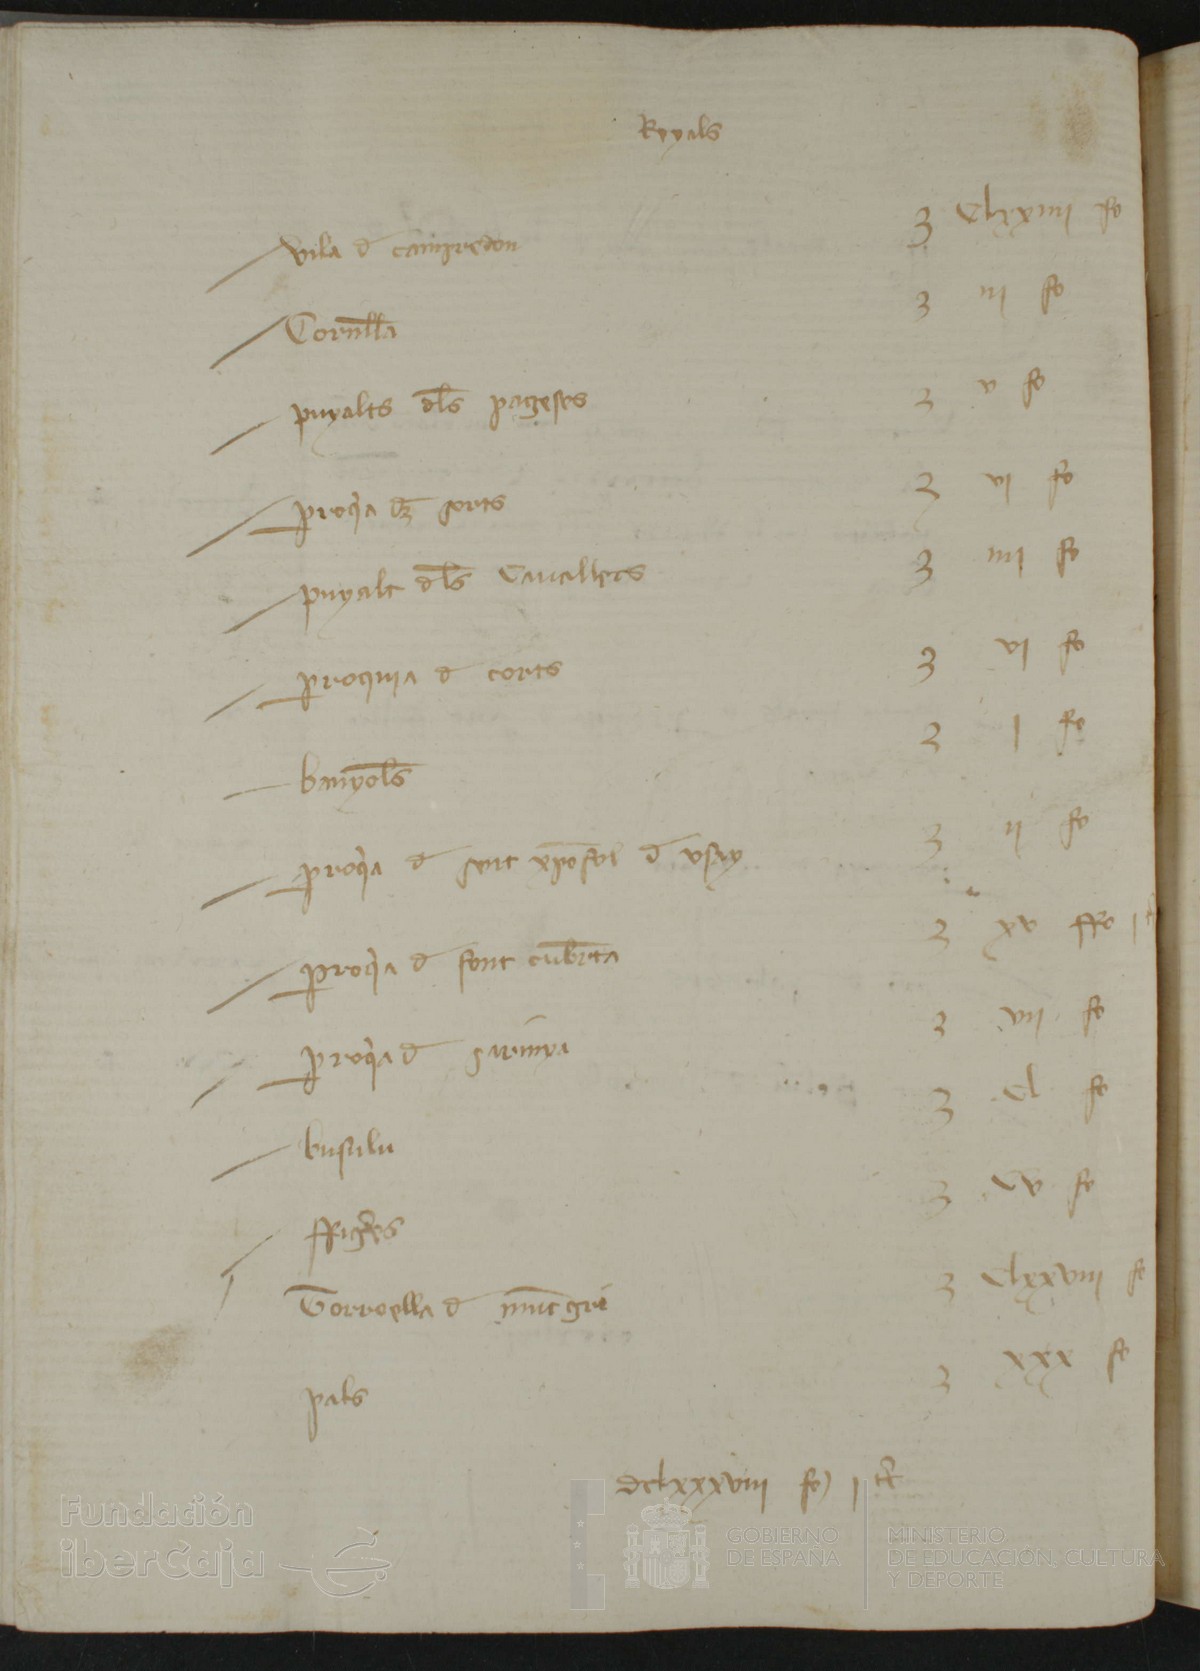 Reyals
vila d campredon ʒ Clxxiiij fo
Cornlla ʒ iij fo
puyalts dls pageses ʒ v fo
proqia dʒ sorts ʒ vj fo
puyalt dls Cauallers ʒ iiij fo
proquia d corts ʒ vj fo
banyols ʒ j fo
proqia d sent xpofol d usay ʒ ij fo
proqia d font cubrta ʒ xv ffo j
proqia d sarinya ʒ vij fo
busulu ʒ Cl fo
ffigres ʒ Cv fo
Torroella d muntgri ʒ Clxxviij fo
pals ʒ xxx fo
dclxxxviij fo j
Fundación
iberCaja
GOBIERNO
DE ESPAÑA
MINISTERIO
DE EDUCACIÓN, CULTURA
Y DEPORTE